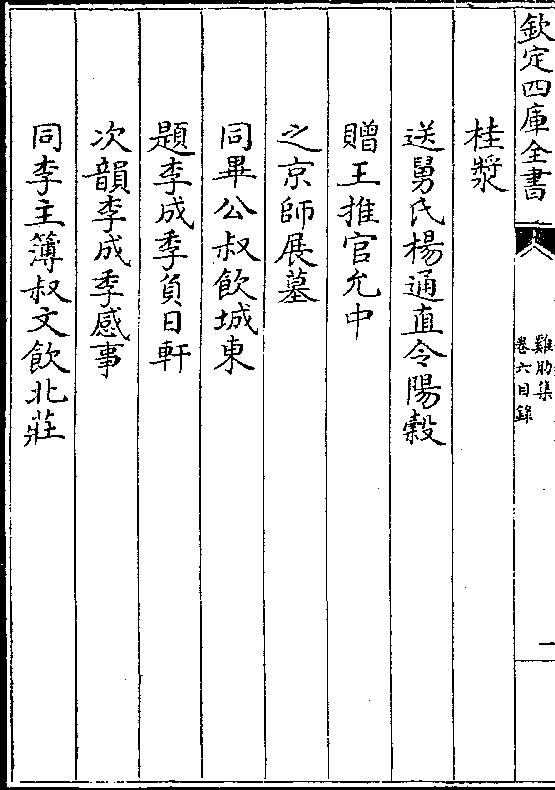 欽定四庫全書
雞肋集
卷六目録
一
桂漿
送舅氏楊通直令陽穀
贈王推官允中
之京師展墓
同畢公叔飲城東
題李成季負日軒
次韻李成季感事
同李主簿叔文飲北莊